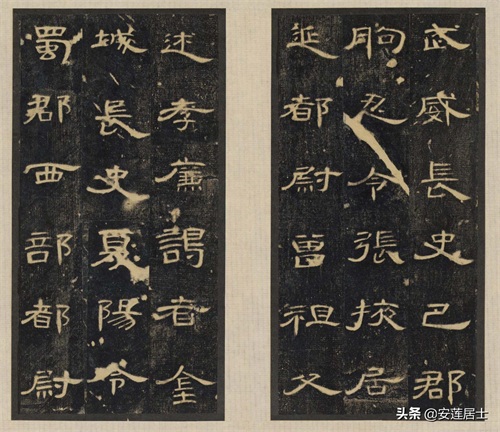 武威長史巴郡
朐忍令張掖居
延都尉曾祖父
述孝廉謁者金
城長史夏陽令
蜀郡西部都尉
头条 @安莲居士